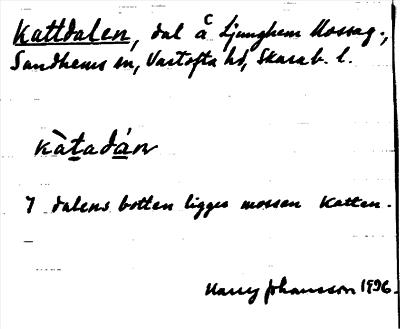 Kattdalen, dal å Ljunghem Mossag.,
Sandhems sn, Vartofta hd, Skarab. l.
kàtadán
I dalens botten ligger mossen Katten.
Harry Johansson 1936.